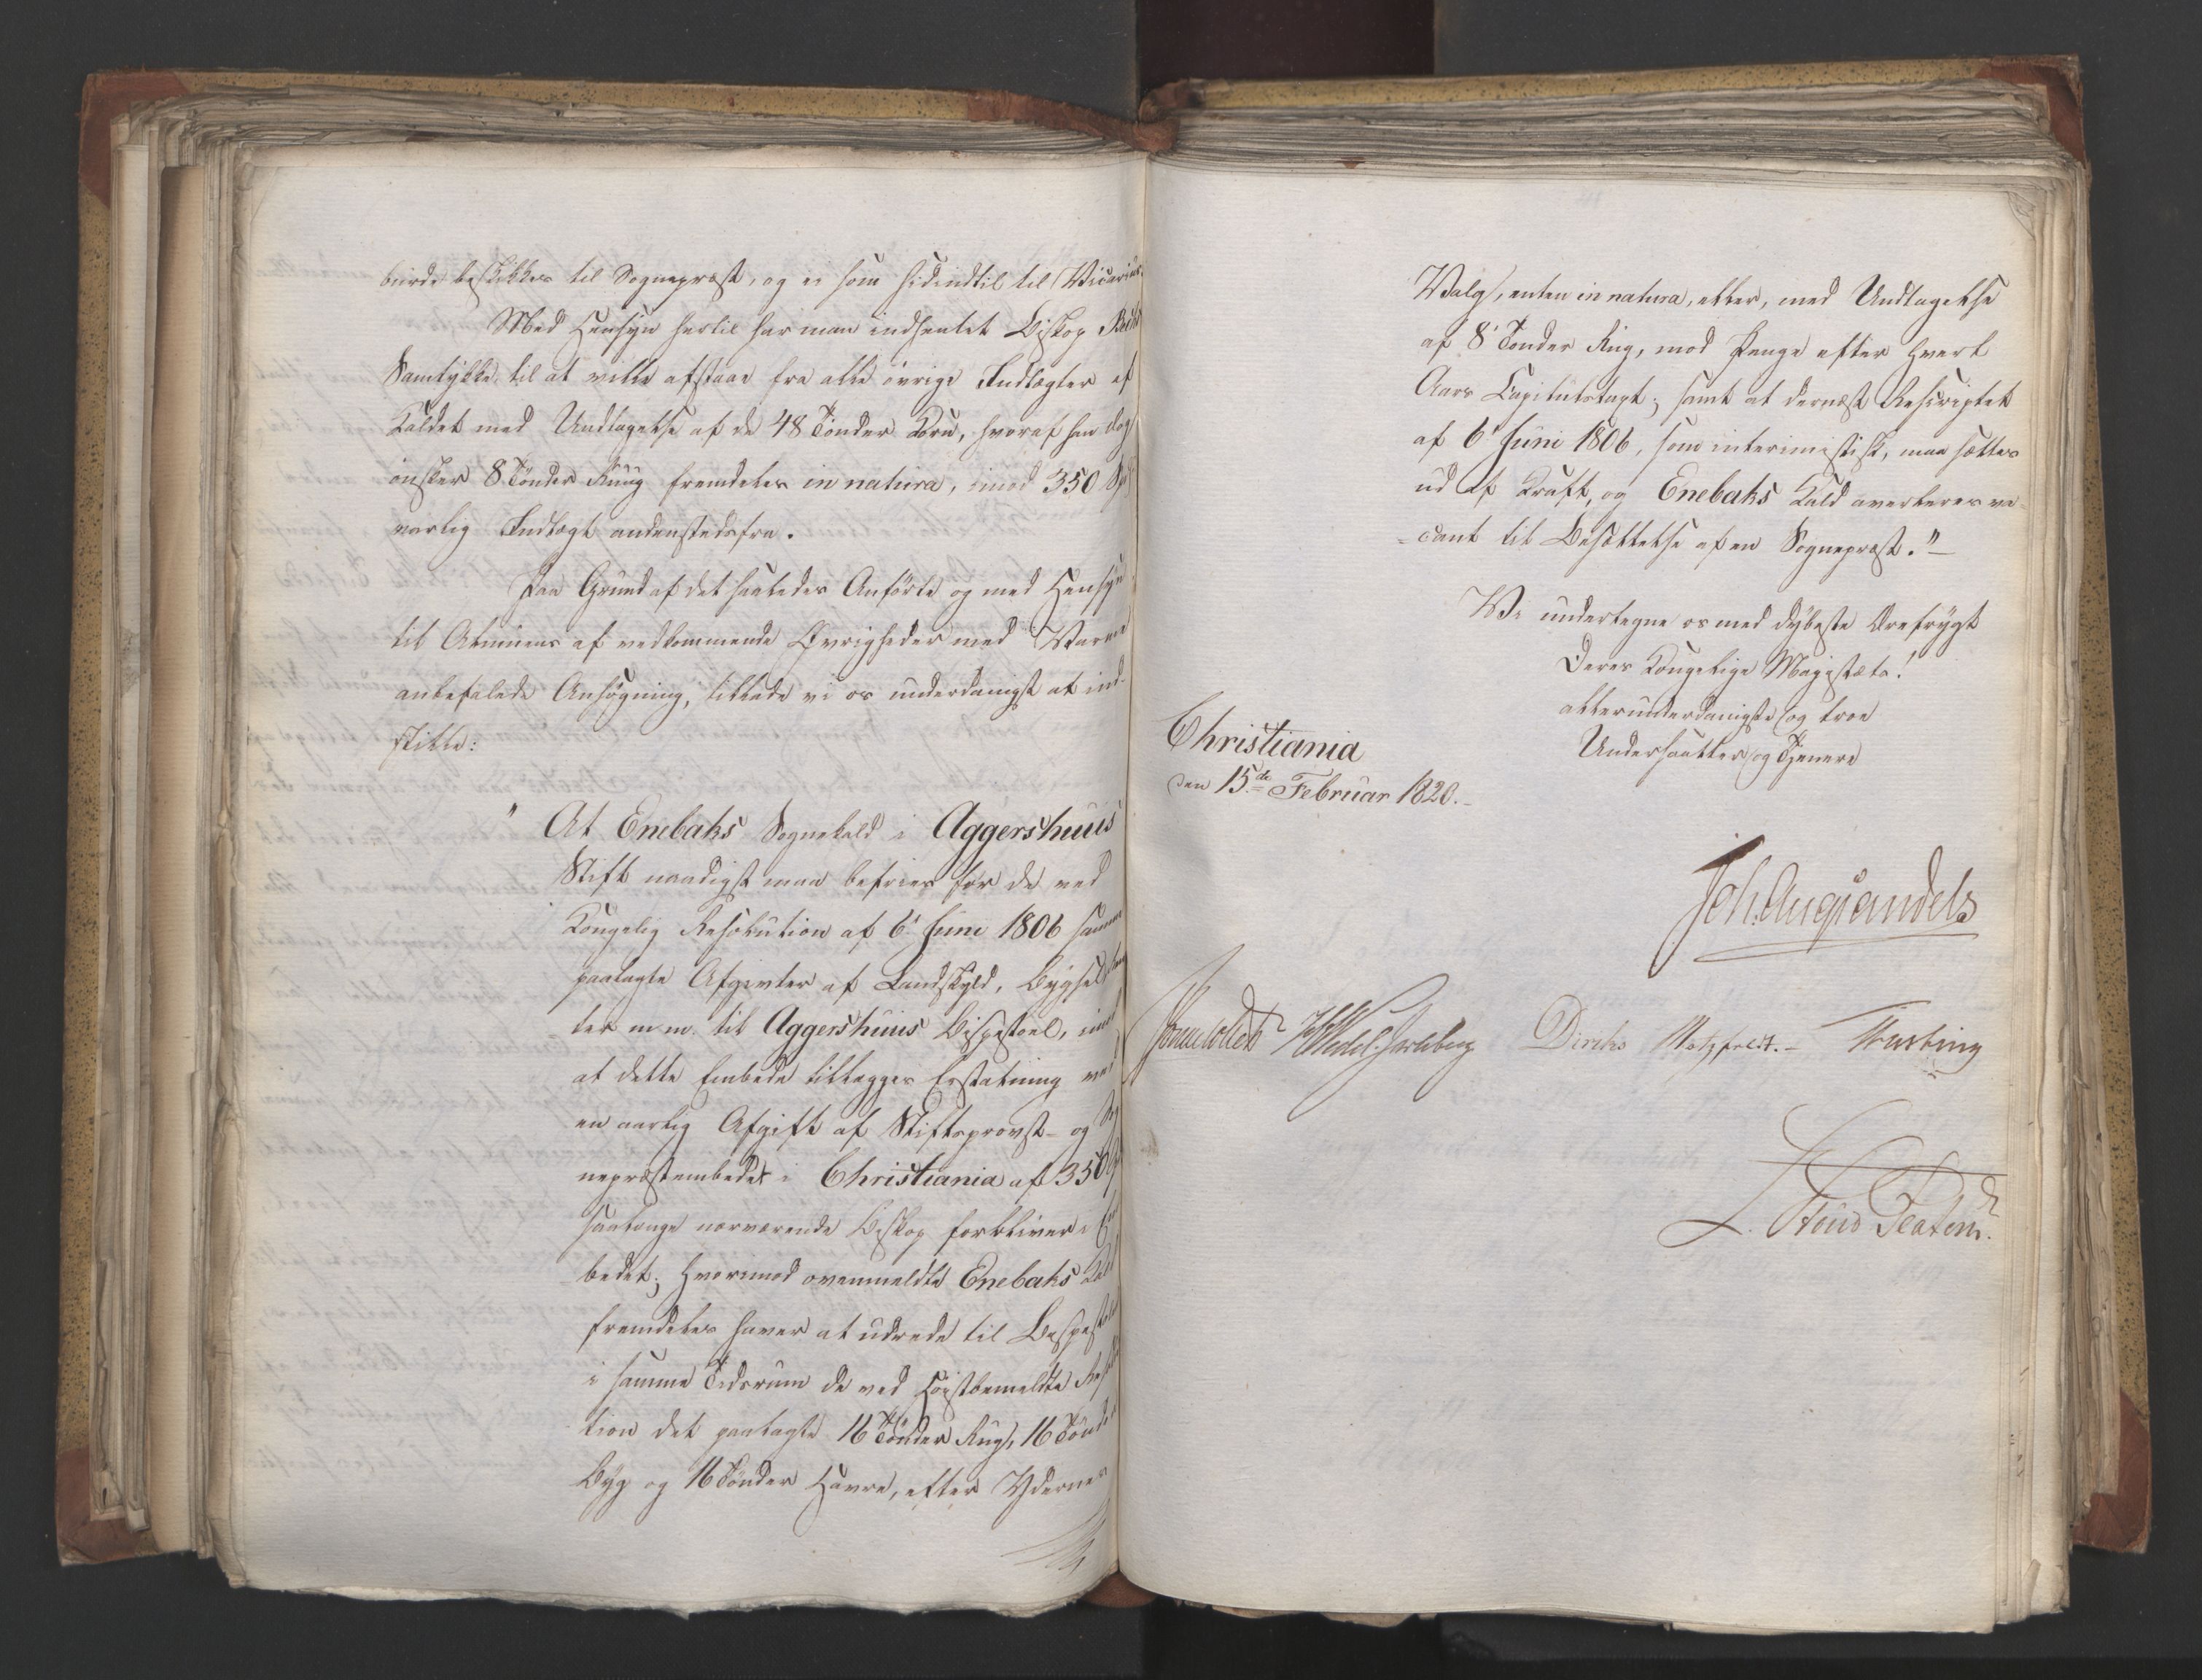 burde beskikkes til Sognepræst, og ei som hidindtil til Vicarius.
Med Hensyn hertil har man indhentet Biskop Bechs
Samtykke til at ville afstaae fra alle øvrige Indtægter af
Kaldet med Undtagelse af de 48 Tønder Korn, hvoraf han dog
ønsker 8 Tønder Ruug fremdeles in natura, imod 350 Spd
aarlig Indtægt andenstedsfra.
Paa Grund af det saaledes Anførte og med Hensyn
til Almuens af vedkommende Øvrigheder med Varme
anbefalede Ansøgning, tillade vi os underdanigst at ind-
stille:
" At Enebaks Sognekald i Aggershuus
Stift naadigst maa befries for de ved
Kongelig Resolution af 6t Juni 1806 samme
paalagte Afgivter af Landskyld, Bygsel
ter m. m. til Aggershuus Bispestoel, imod
at dette Embede tillægges Erstatning ved
en aarlig Afgift af Stiftsprovst- og Sog
nepræstembedet i Christiania af 350
saalænge nærværende Biskop forbliver i Em
bedet; hvorimod ovenmeldte Enebaks Kald
fremdeles haver at udrede til Bispestolen
i samme Tidsrum de ved høistbemeldte Resolu
tion det paalagte 16 Tønder Rug, 16 Tønder
Byg og 16 Tønder Havre, efter Ydernes
Valg, enten in natura, eller, med Undtagelse
af 8t Tønder Rug, mod Penge efter hvert
Aars Capitulstaxt; samt at dernæst Rescriptet
af 6t Juni 1806, som interimistisk, maa sættes
ud af Kraft, og Enebaks Kald averteres va-
-cant til Besættelse af en Sognepræst."-
Vi undertegne os med dybeste Ærefrygt
Deres Kongelige Majestæts!
allerunderdanigste og troe
Undersaatter og Tjenere
Christiania
den 15de Februar 1820.-
Joh. Aug Sandels
Jonas Collett HWedel Jarlsberg Diriks Motzfeldt.- Krebting
L. Stoud Platou